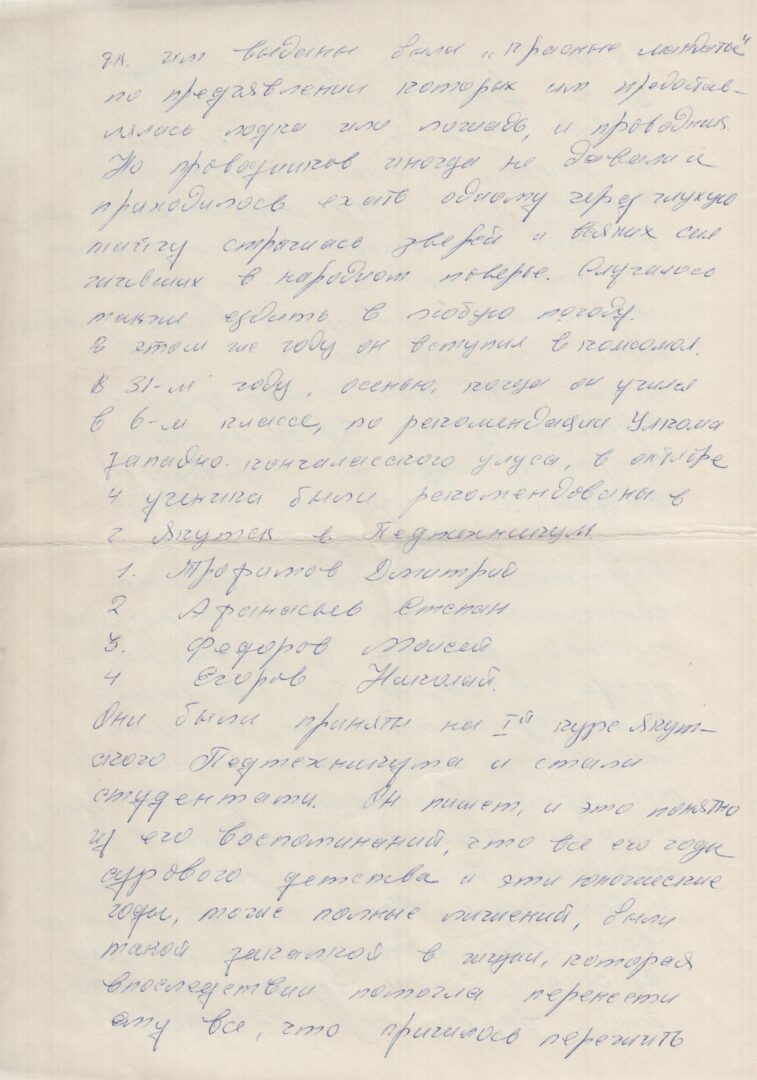 им выданы были „красные мандаты"
по предъявлении которых им предостав-
лялась лодка или лошадь, и проводник.
Но проводников иногда не давали и
приходилось ехать одному через глухую
тайгу страшась зверей и всяких сил
живших в народном поверье. Случалось
также ездить в любую погоду.
В этом же году он вступил в комсомол.
В 31-м году, осенью, когда он учился
в 6-м классе, по рекомендации Улкома
Западно-кангаласского улуса, в октябре
4 ученика были рекомендованы в
г. Якутск в Педтехникум
1. Трофимов Дмитрий
2 Афанасьев Степан
3. Федоров Моисей
4 Егоров Николай.
Они были приняты на I й курс Якут-
ского Педтехникума и стали
студентами. Он пишет, и это понятно
из его воспоминаний, что все его годы
сурового детства и эти юношеские
годы, тоже полные лишений, были
такой закалкой в жизни, которая
впоследствии помогла перенести
ему все, что пришлось пережить